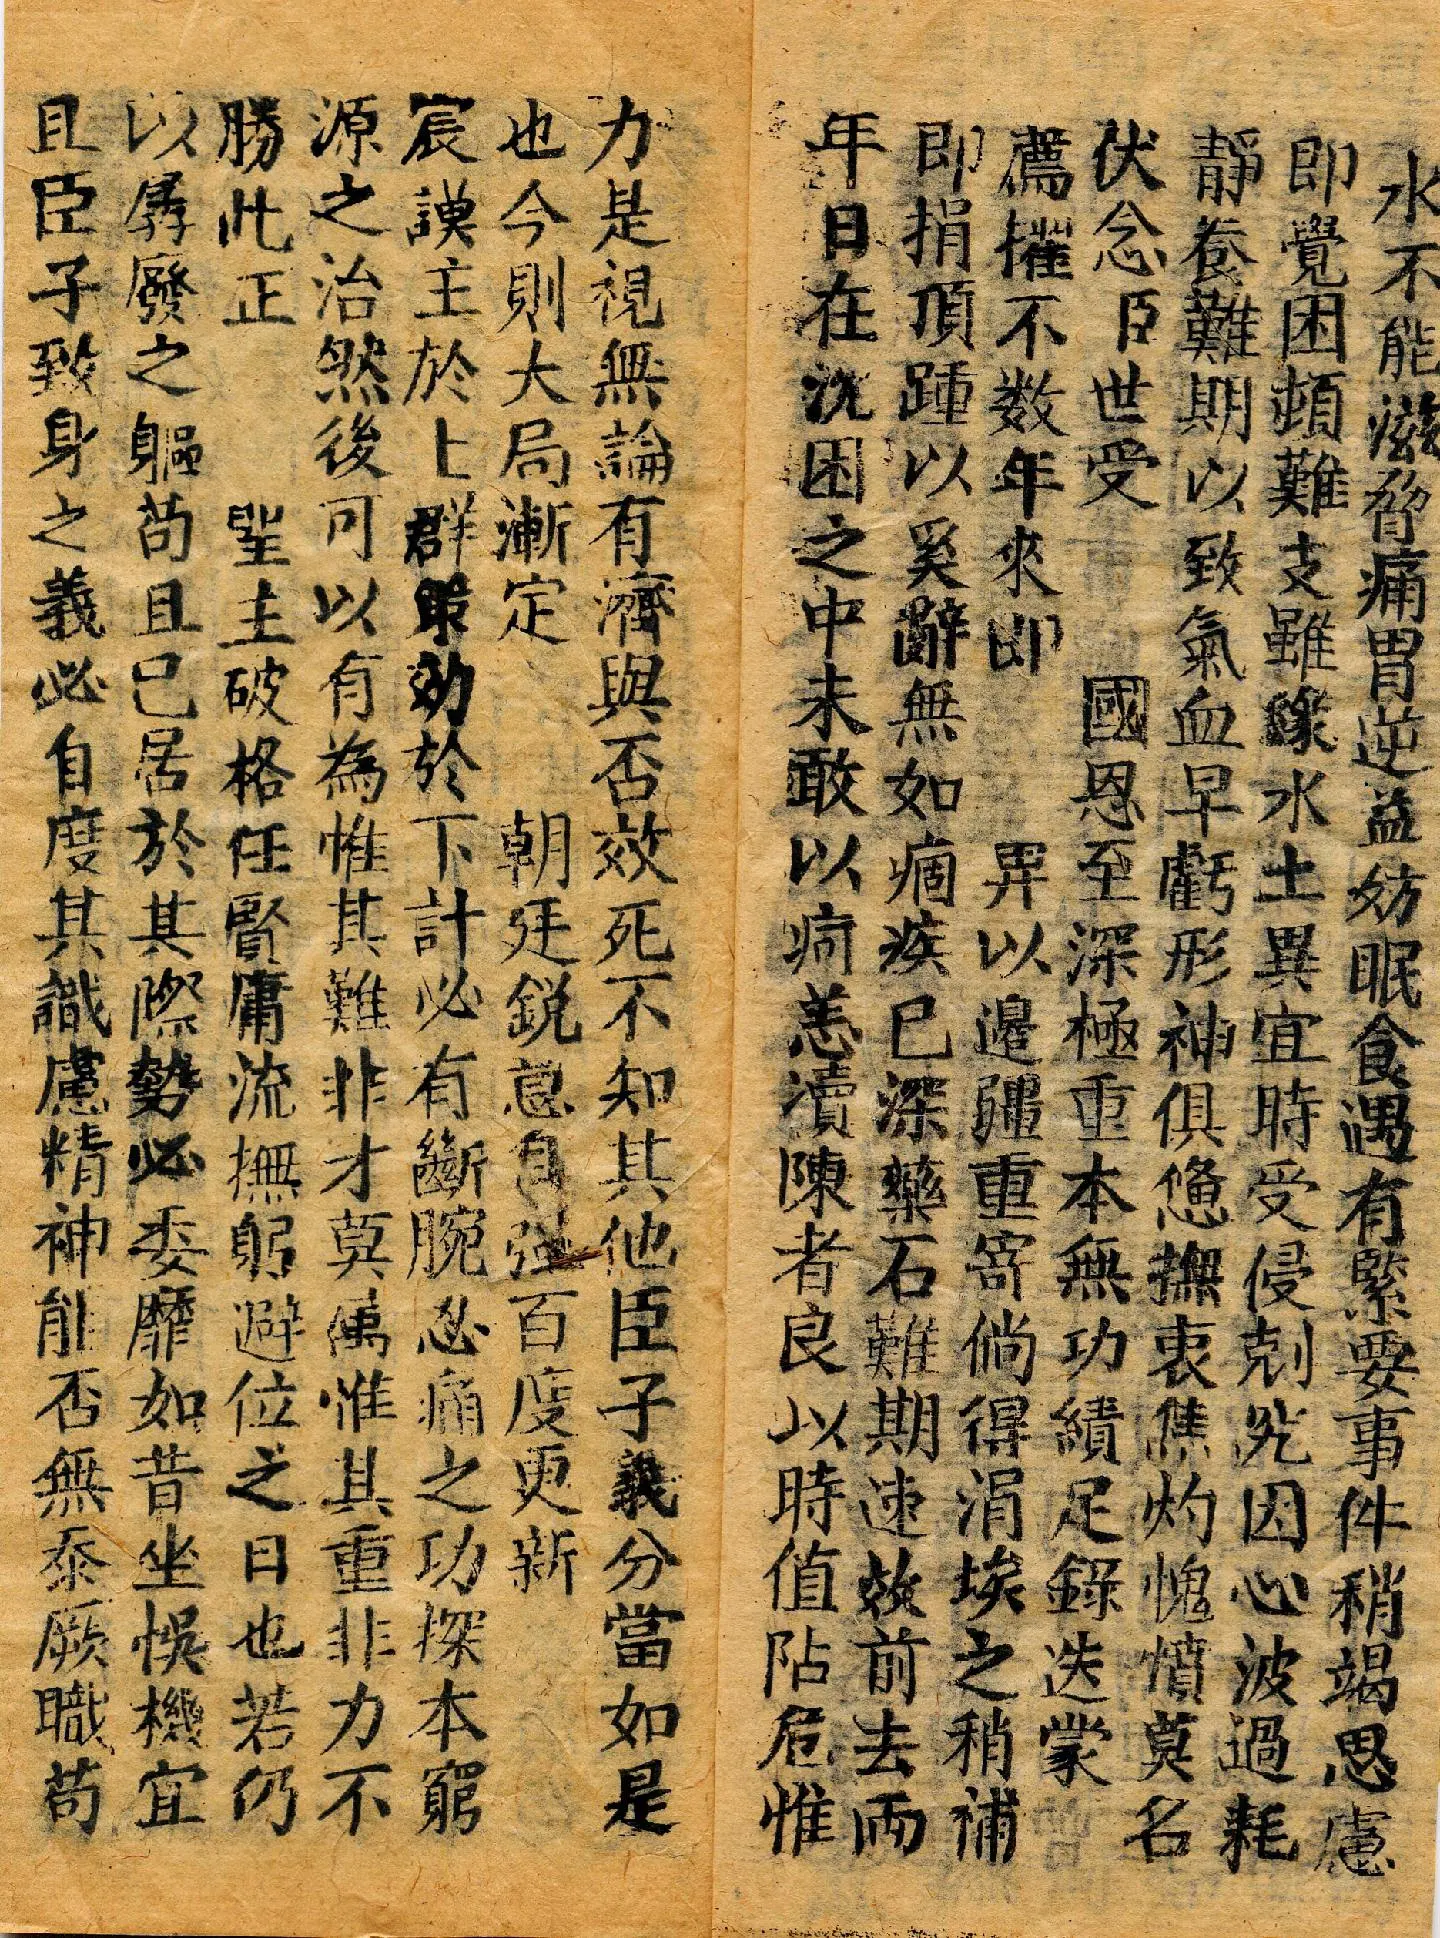 水不能滋脅痛胃逆益妨眠食遇有緊要事件稍竭思慮
即覺困頓難支雖緣水土異宜時受侵剋究因心波過耗
靜養難期以致氣血早虧形神俱憊撫衷焦灼愧憤莫名
伏念臣世受 國恩至深極重本無功績足錄迭蒙
薦擢不数年來即 畀以邊疆重寄倘得涓埃之稍補
即捐頂踵以奚辭無如痼疾已深藥石難期速效前去兩
年日在沈困之中未敢以疴恙瀆陳者良以時值阽危惟
力是視無論有濟與否效死不知其他臣子義分當如是
也今則大局漸定 朝廷銳意自強百度更新
宸謨主於上群策効於下計必有斷腕忍痛之功探本窮
源之治然後可以有為惟其難非才莫属惟其重非力不
勝此正 聖主破格任賢庸流撫躬避位之日也若仍
以孱廢之軀苟且已居於其際勢必委靡如昔坐悞機宜
且臣子致身之義必自度其識慮精神能否無忝厥職苟